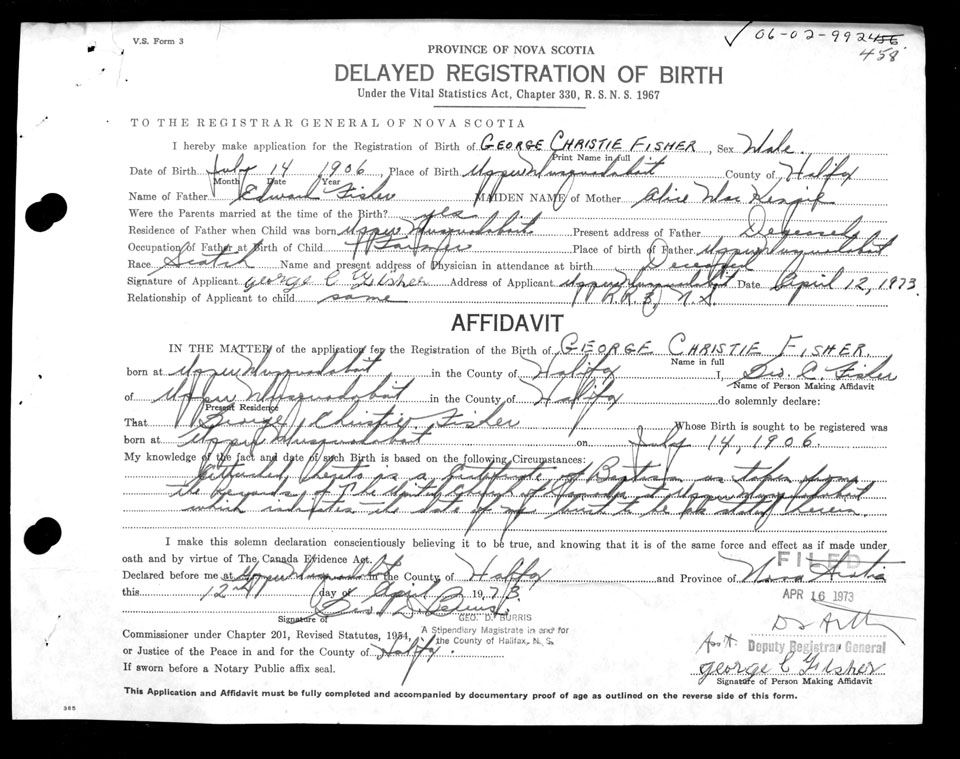 V.S. Form 3
✓ 06-02-992 456
458
PROVINCE OF NOVA SCOTIA
DELAYED REGISTRATION OF BIRTH
Under the Vital Statistics Act, Chapter 330, R. S. N. S. 1967
TO THE REGISTRAR GENERAL OF NOVA SCOTIA
I hereby make application for the Registration of Birth of GEORGE CHRISTIE FISHER, Sex Male.
Print Name in full
Date of Birth July 14 1906, Place of Birth Upper Musquodoboit County of Halifax
Month Date Year
Name of Father Edward Fisher MAIDEN NAME of Mother Alice Mac Kenzie
Were the Parents married at the time of the Birth? yes
Residence of Father when Child was born Upper Musquodoboit Present address of Father Deceased
Occupation of Father at Birth of Child Farmer Place of birth of Father Upper Musquodoboit
Race Scotch Name and present address of Physician in attendance at birth Deceased
Signature of Applicant George C Fisher Address of Applicant Upper Musquodoboit Date April 12, 1973.
Relationship of Applicant to child same R.R.3, N.S.
AFFIDAVIT
IN THE MATTER of the application for the Registration of the Birth of GEORGE CHRISTIE FISHER.
Name in full
born at Upper Musquodoboit in the County of Halifax I, Geo. C. Fisher
Name of Person Making Affidavit
of Upper Musquodoboit in the County of Halifax do solemnly declare:
Present Residence
That George Christie Fisher Whose Birth is sought to be registered was
born at Upper Musquodoboit on July 14, 1906.
My knowledge of the fact and date of such Birth is based on the following Circumstances:
Attached hereto is a Certificate of Baptism as taken from
the records of The United Church of Canada at Upper Musquodoboit
which indicates the date of my birth to be as stated herein.
I make this solemn declaration conscientiously believing it to be true, and knowing that it is of the same force and effect as if made under
oath and by virtue of The Canada Evidence Act.
FILED
Declared before me at Upper Musquodoboit in the County of Halifax and Province of Nova Scotia
this 12th day of April 1973.
APR 16 1973
Geo. D. Burris
Signature of
GEO. D. BURRIS
A Stipendiary Magistrate in and for
the County of Halifax, N. S.
Commissioner under Chapter 201, Revised Statutes, 1954,
or Justice of the Peace in and for the County of Halifax.
Ass't. Deputy Registrar General
If sworn before a Notary Public affix seal.
George C Fisher
Signature of Person Making Affidavit
This Application and Affidavit must be fully completed and accompanied by documentary proof of age as outlined on the reverse side of this form.
365